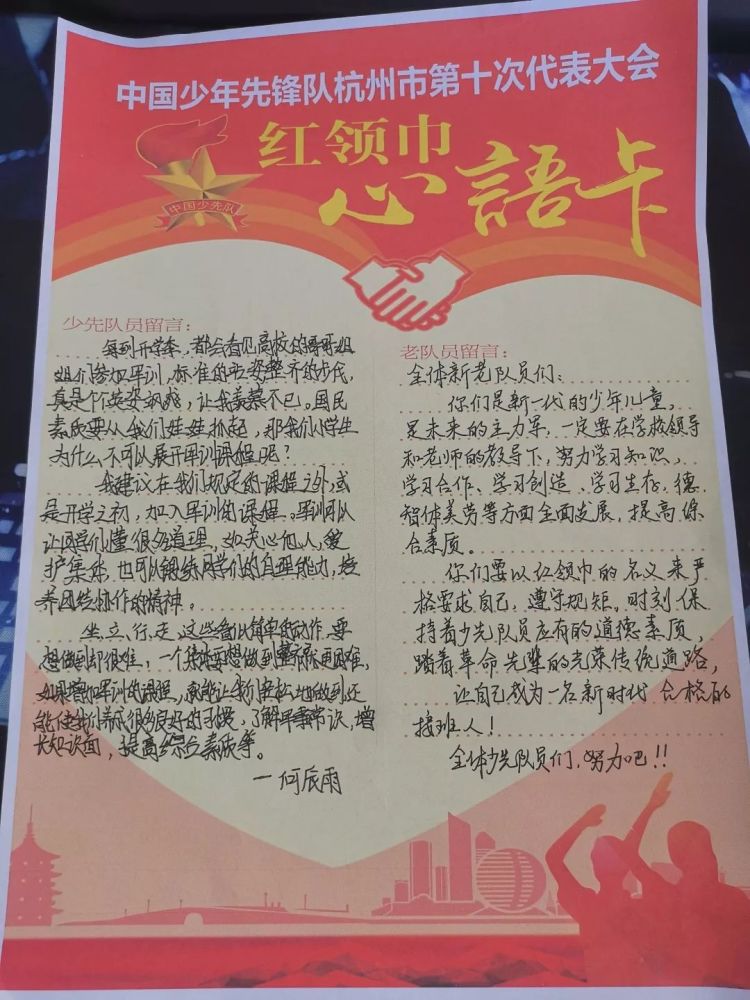 中国少年先锋队杭州市第十次代表大会
红领巾
心語卡
中国少先队
少先队员留言：
每到开学季，都会看见高校的哥哥姐
姐们参加军训，标准的站姿整齐的步伐，
真是个个英姿飒爽，让我羡慕不已。国民
素质要从我们娃娃抓起，那我们小学生
为什么不可以展开军训课程呢？
我建议在我们规定的课程之外，或
是开学之初，加入军训的课程。军训可以
让同学们懂很多道理，如关心他人，爱
护集体，也可以锻练同学们的自理能力，培
养团结协作的精神。
坐、立、行、走、这些看似简单的动作，要
想做到却很难，一个集体要想做到整齐就更难，
如果增加军训的课程，就能让我们轻松地做到还
能使我们养成很多良好的习惯，了解军事常识，增
长知识面，提高综合素质等。
一何辰雨
老队员留言：
全体新老队员们：
你们是新一代的少年儿童，
是未来的主力军，一定要在学校领导
和老师的教导下，努力学习知识，
学习合作、学习创造、学习生存，德、
智体美劳等方面全面发展，提高综
合素质。
你们要以红领巾的名义来严
格要求自己，遵守规矩。时刻保
持着少先队员应有的道德素质，
踏着革命先辈的光荣传统道路，
让自己成为一名新时代合格的
接班人！
全体少先队员们，努力吧！！